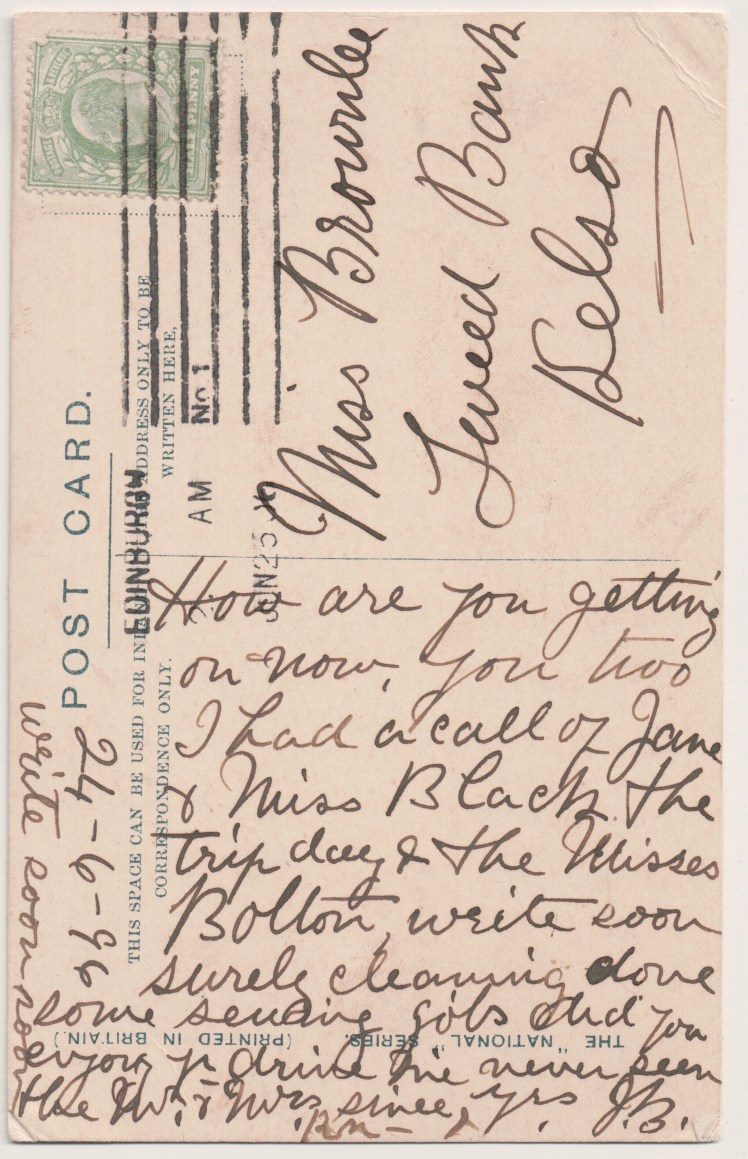 POST CARD.
THIS SPACE CAN BE USED FOR
CORRESPONDENCE ONLY.
ADDRESS ONLY TO BE
WRITTEN HERE,
EDINBURGH
AM No 1
JUN 25
Miss Brownlee
Tweed Bank
Kelso
24-6-
How are you getting
on now, you two
I had a call of Jane
& Miss Black the
trip day & the Misses
Bolton, write soon
surely cleaning done
some sewing jobs did you
enjoy yr drive I've never seen
the Mr. & Mrs since, yrs. J.B.
write soon
THE "NATIONAL" SERIES.
(PRINTED IN BRITAIN.)